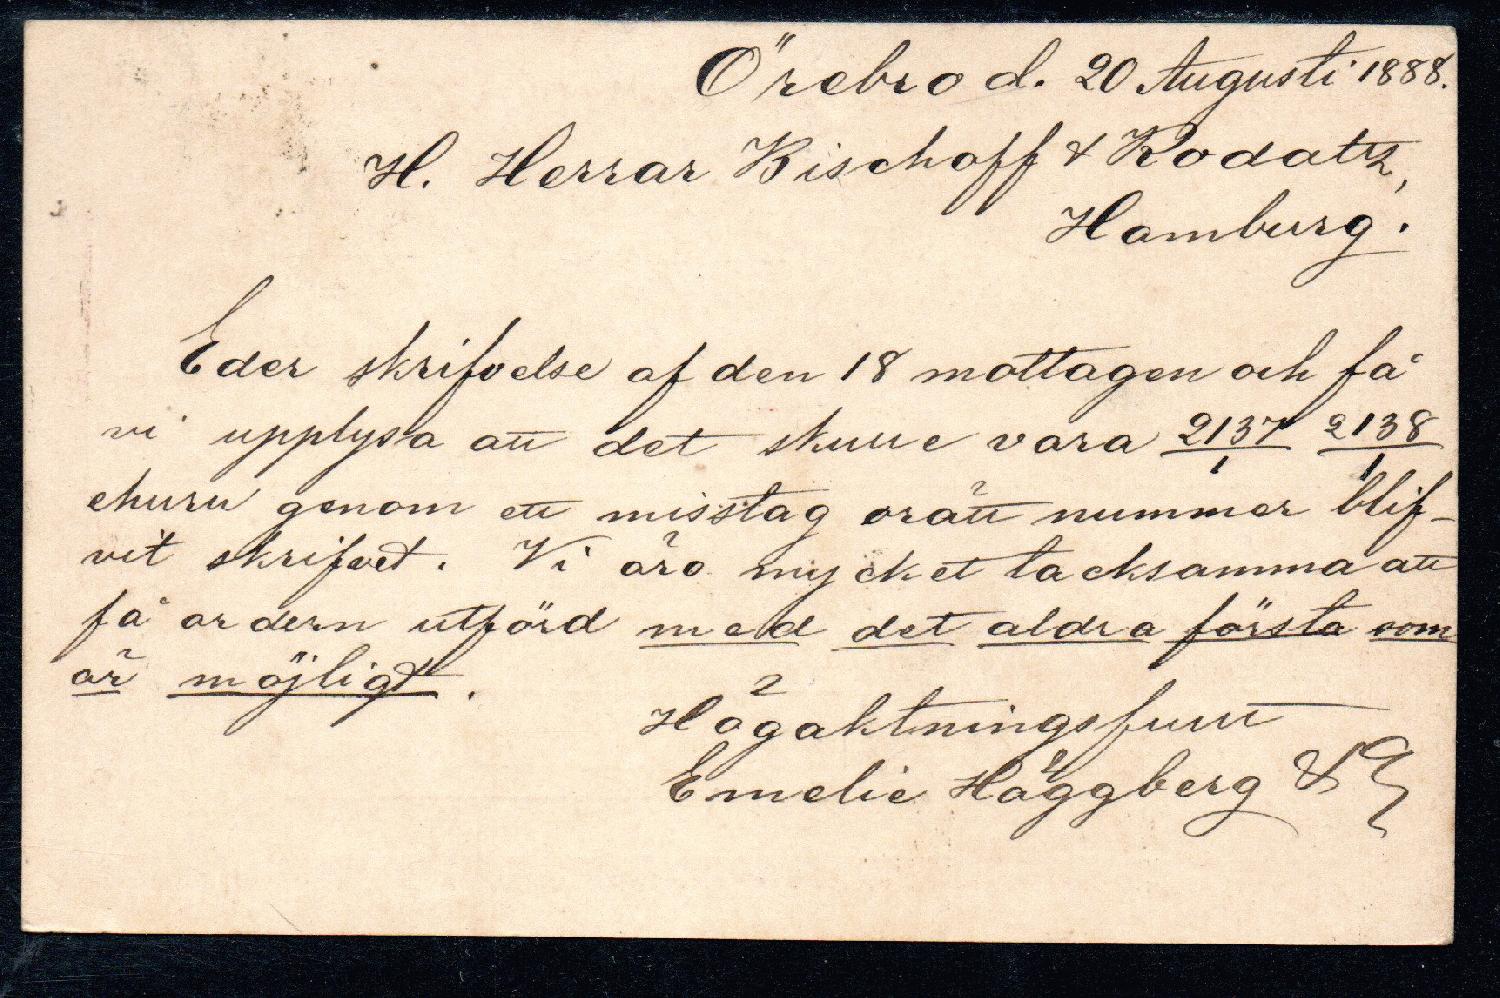 Örebro d. 20 Augusti 1888.
H. Herrar Bischoff & Rodatz,
Hamburg.
Eder skrifvelse af den 18 mottagen och få
vi upplysa att det skulle vara 2137/1 2138/1
ehuru genom ett misstag orätt nummer blif-
vit skrifvet. Vi äro mycket tacksamma att
få ordern utförd med det aldra första som
är möjligt.
Högaktningsfullt
Emelie Häggberg & C